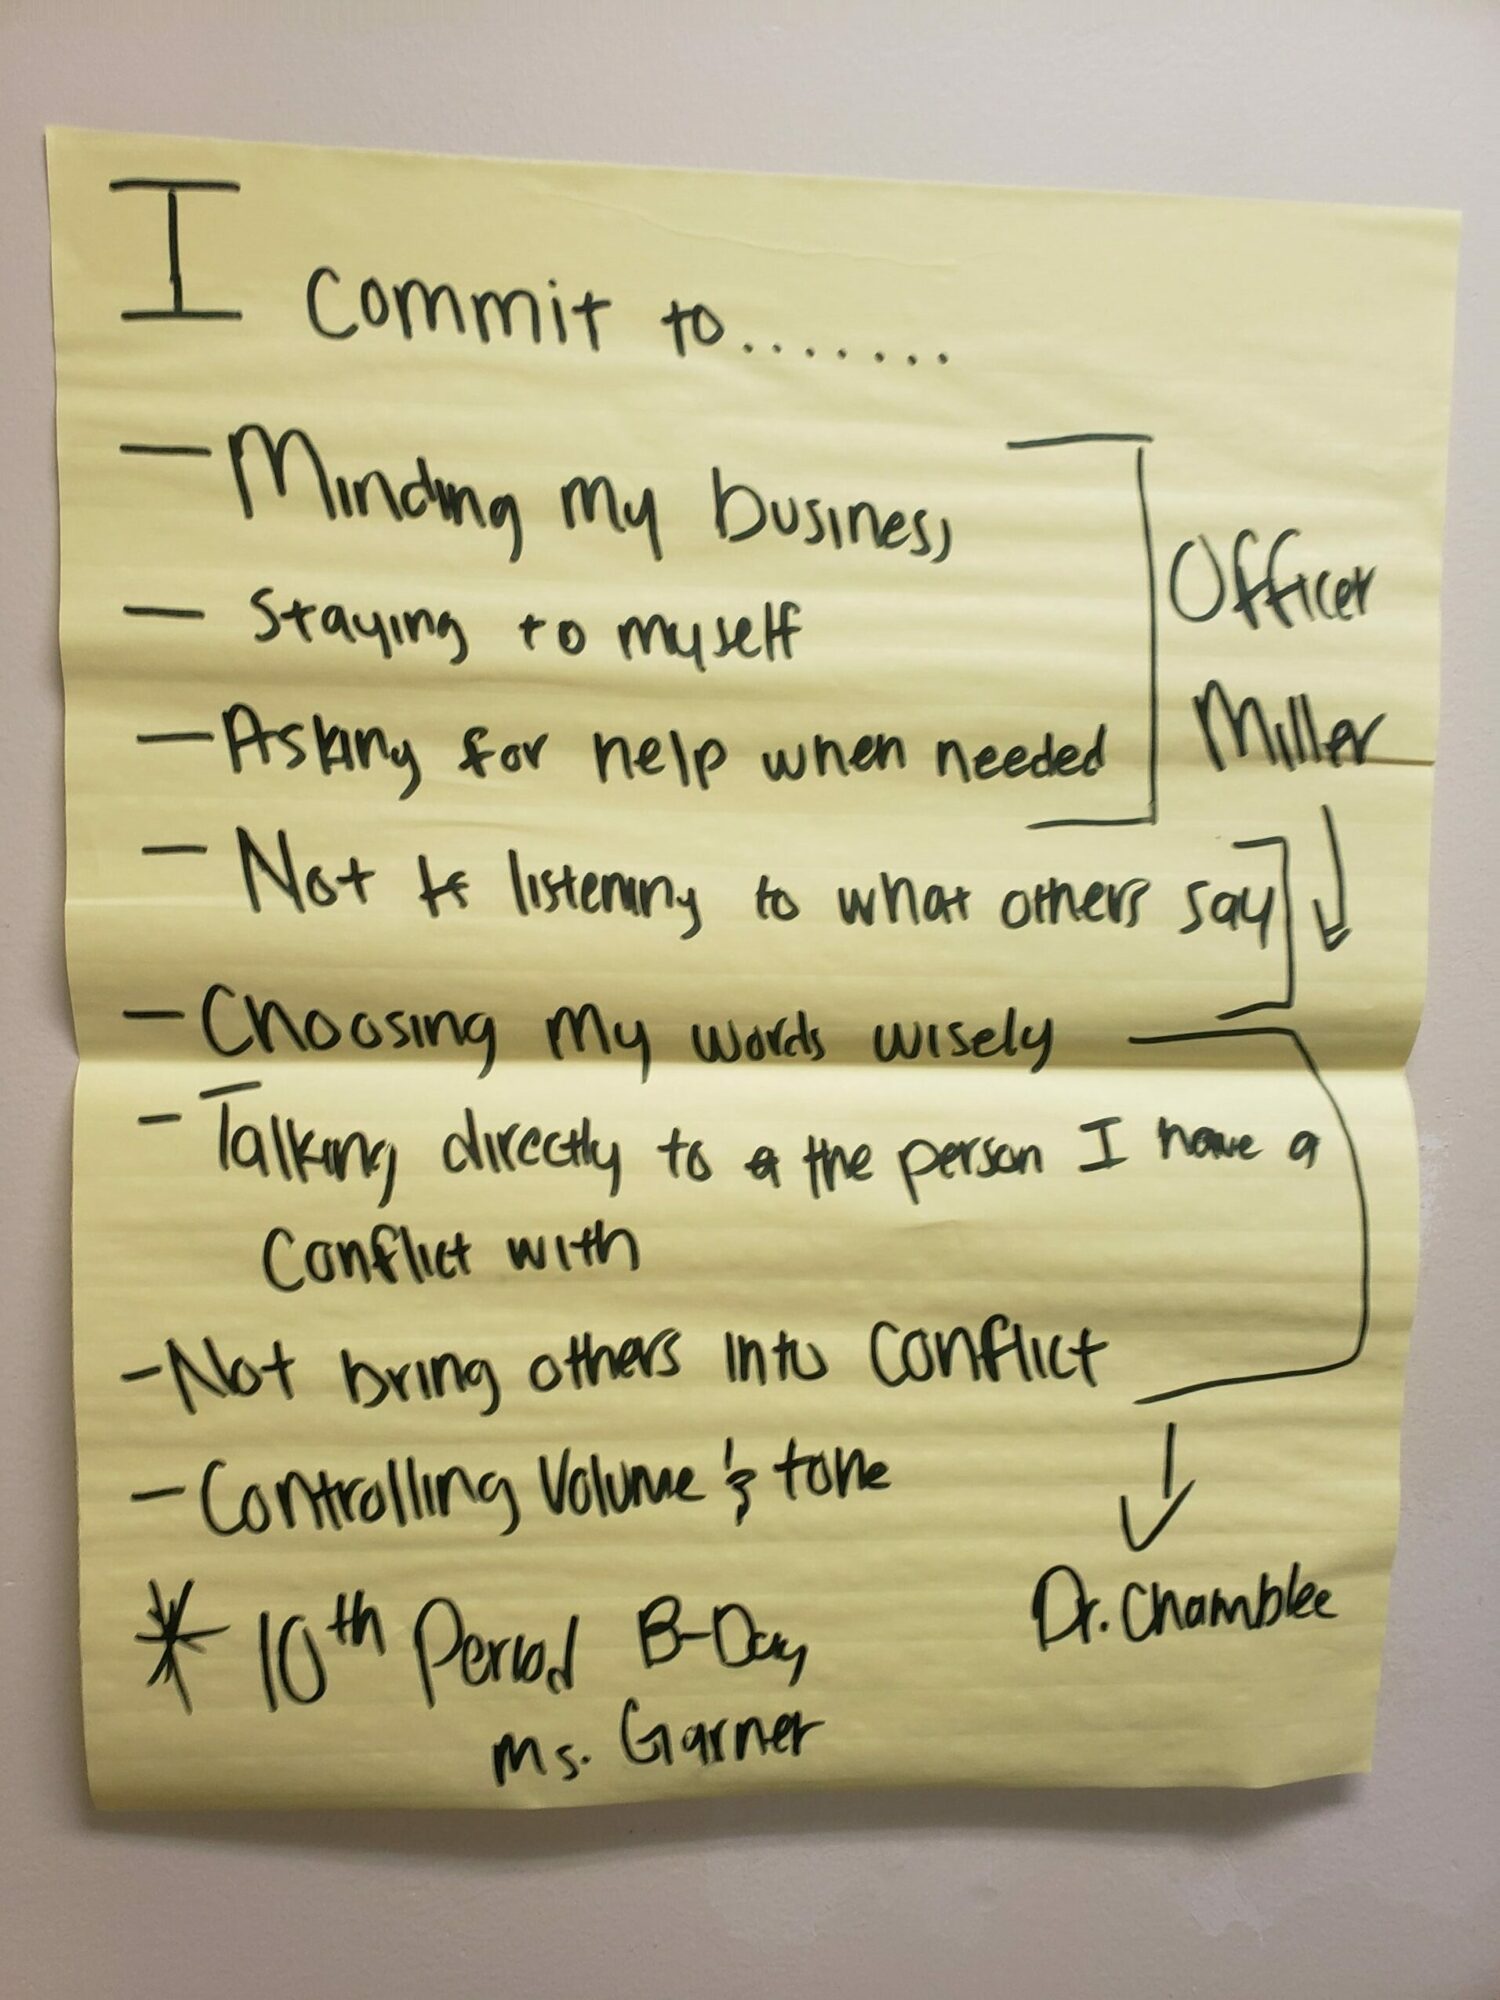 I commit to........
- Minding my business,
- Staying to myself
- Asking for help when needed
Officer
Miller
- Not listening to what others say
- Choosing my words wisely
- Talking directly to the person I have a
Conflict with
- Not bring others into conflict
- Controlling Volume & tone
Dr. Chamblee
* 10th Period B-Day
Ms. Garner